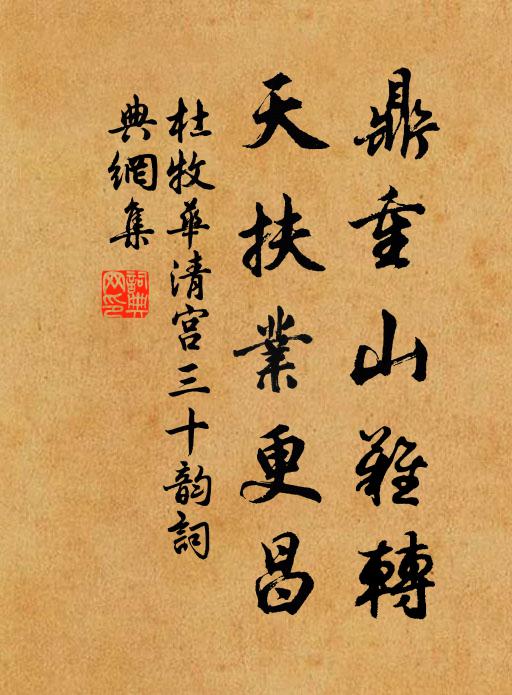 鼎重山難轉
天扶業更昌
杜牧華清宮三十韵詞
典網集
詞典网印